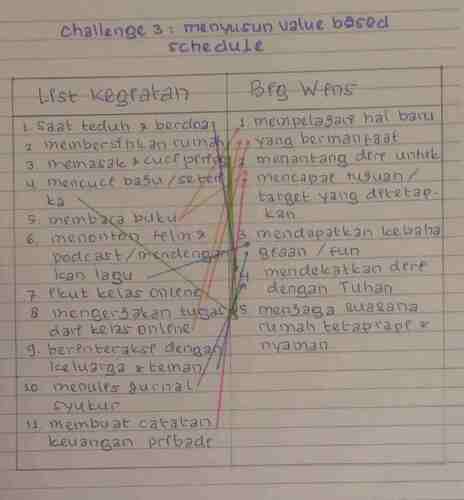 Challenge 3 : menyusun value based
schedule
List Kegiatan
1. Saat teduh & berdoa
2. membersihkan rumah
3. memasak & cuci piring
4. mencuci baju / setri
ka
5. membaca buku
6. menonton film &
podcast / mendengar
kan lagu
7. Ikut kelas online
8. mengerjakan tugas
dari kelas online
9. berinteraksi dengan
keluarga & teman
10. menulis jurnal
syukur
11. membuat catatan
keuangan pribadi
Big Wins
1 mempelajari hal baru
yang bermanfaat
2 menantang diri untuk
mencapai tujuan /
target yang ditetap-
kan
3 mendapatkan kebaha
giaan / fun
4 mendekatkan diri
dengan Tuhan
5 menjaga suasana
rumah tetap rapi &
nyaman